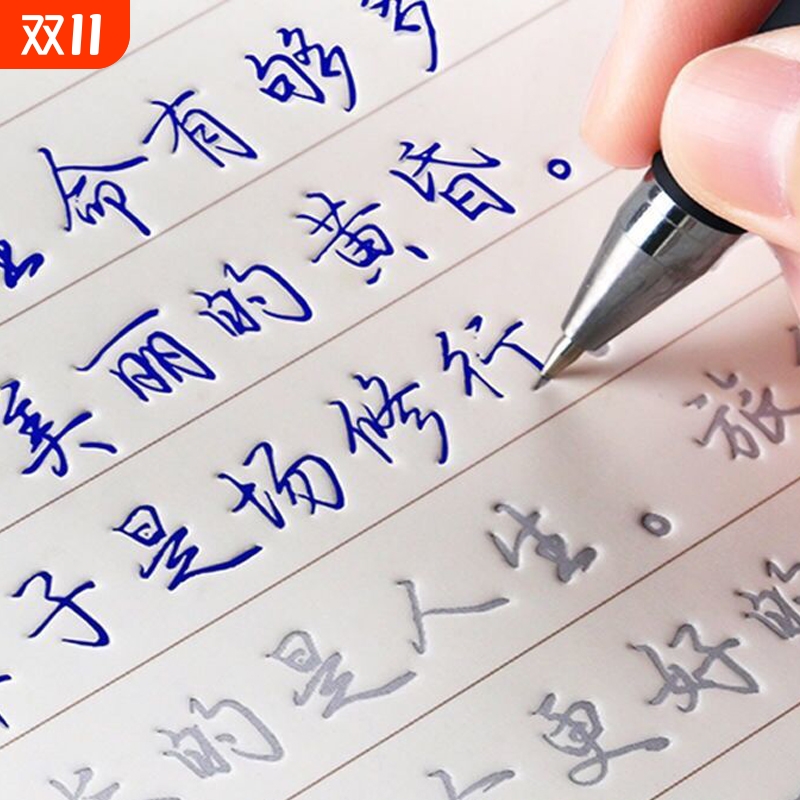 双11
命有够多
美丽的黄昏。
子是场修行
的是人生。旅
更好的